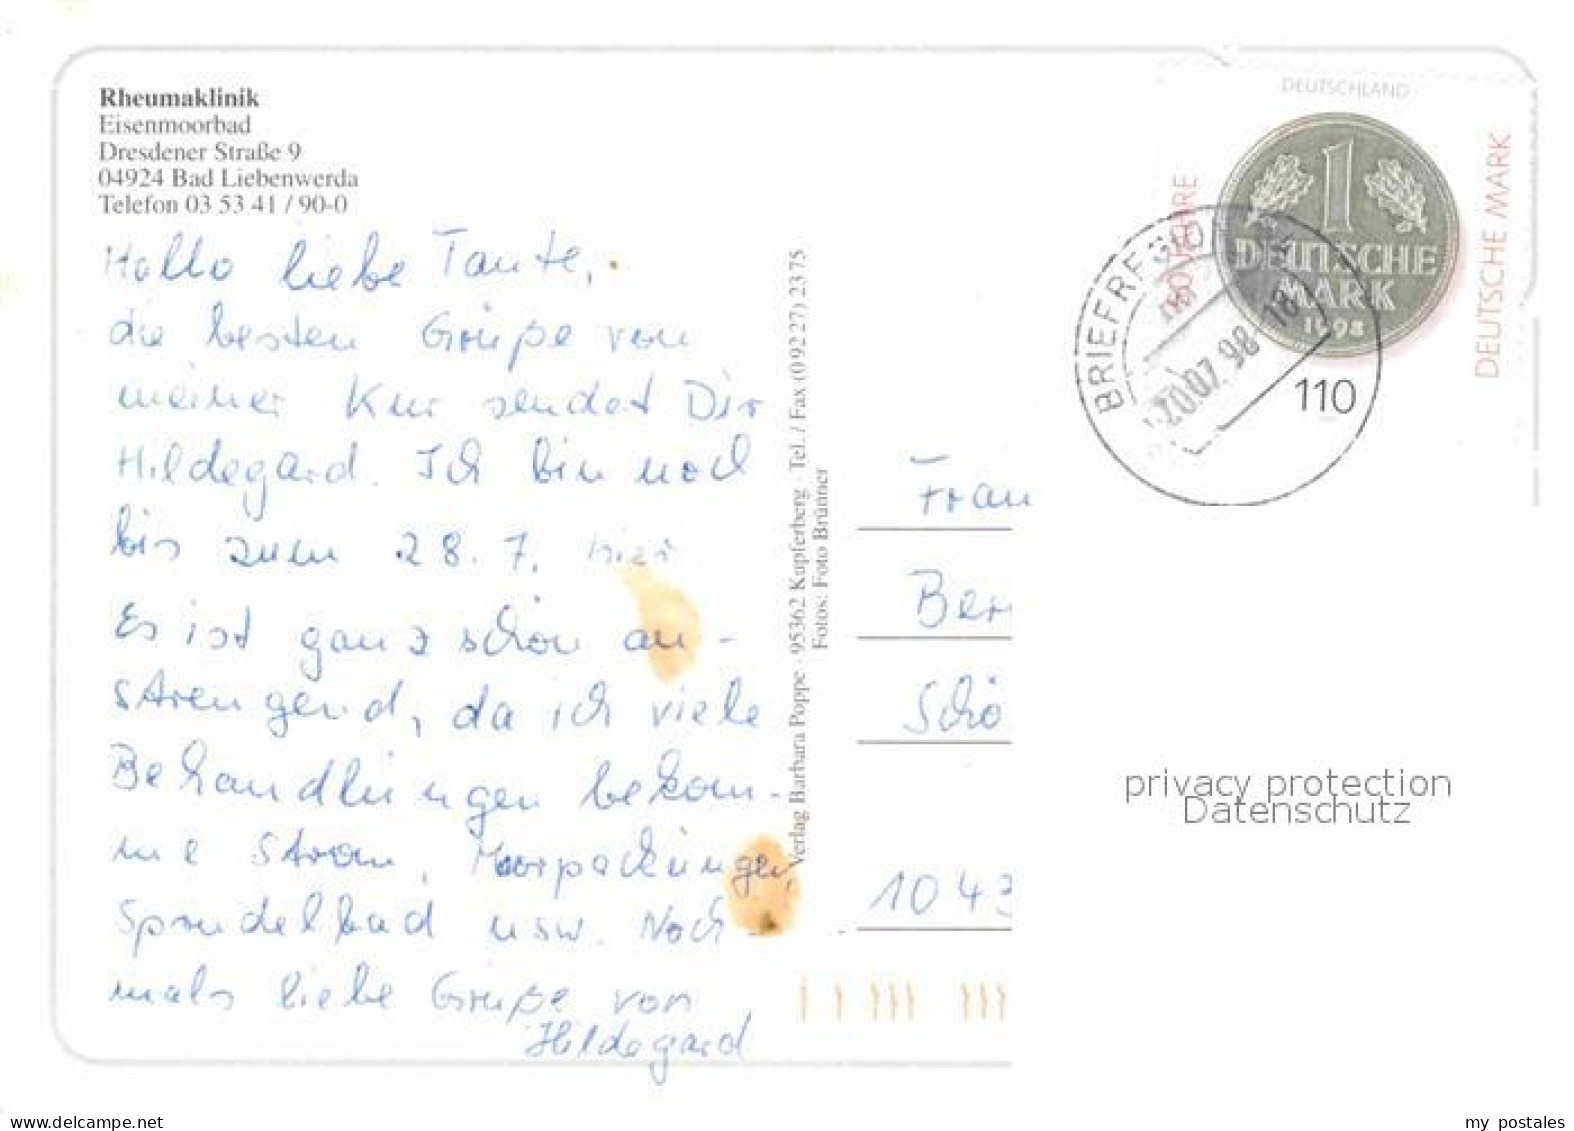 Rheumaklinik
Eisenmoorbad
Dresdener Straße 9
04924 Bad Liebenwerda
Telefon 03 53 41 / 90-0
Hallo liebe Tante,
die besten Grüße von
meiner Kur sendet Dir
Hildegard. Ich bin noch
bis zum 28.7. hier
Es ist ganz schön an-
strengend, da ich viele
Behandlungen bekom-
me Strom, Moorpackungen,
Sprudelbad usw. Noch-
mals liebe Grüße von
Hildegard
Verlag Barbara Poppe · 95362 Kupferberg · Tel./ Fax (0 92 27) 23 75
Fotos: Foto Brünner
DEUTSCHLAND
50 JAHRE
DEUTSCHE MARK
1
DEUTSCHE
MARK
1998
110
BRIEFZENTRUM
20.07.98-18
Frau
Ber
Schö
1043
privacy protection
Datenschutz
my postales